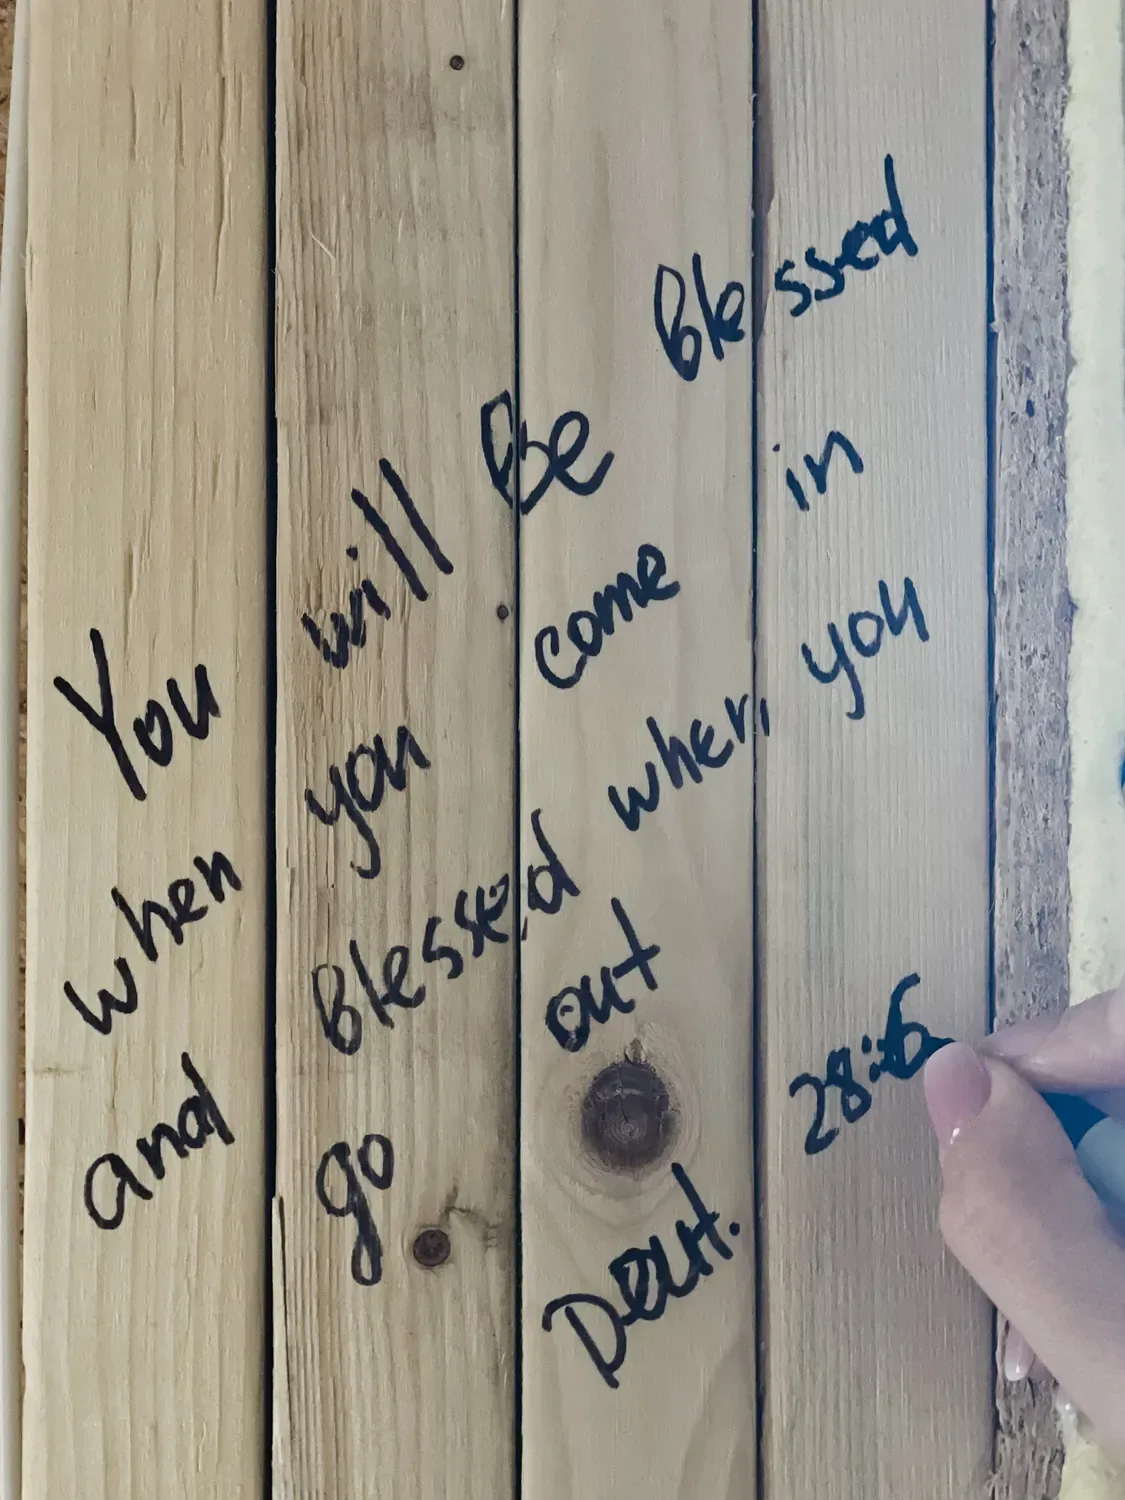 You will Be Blessed
when you come in
and Blessed when you
go out
Deut. 28:6